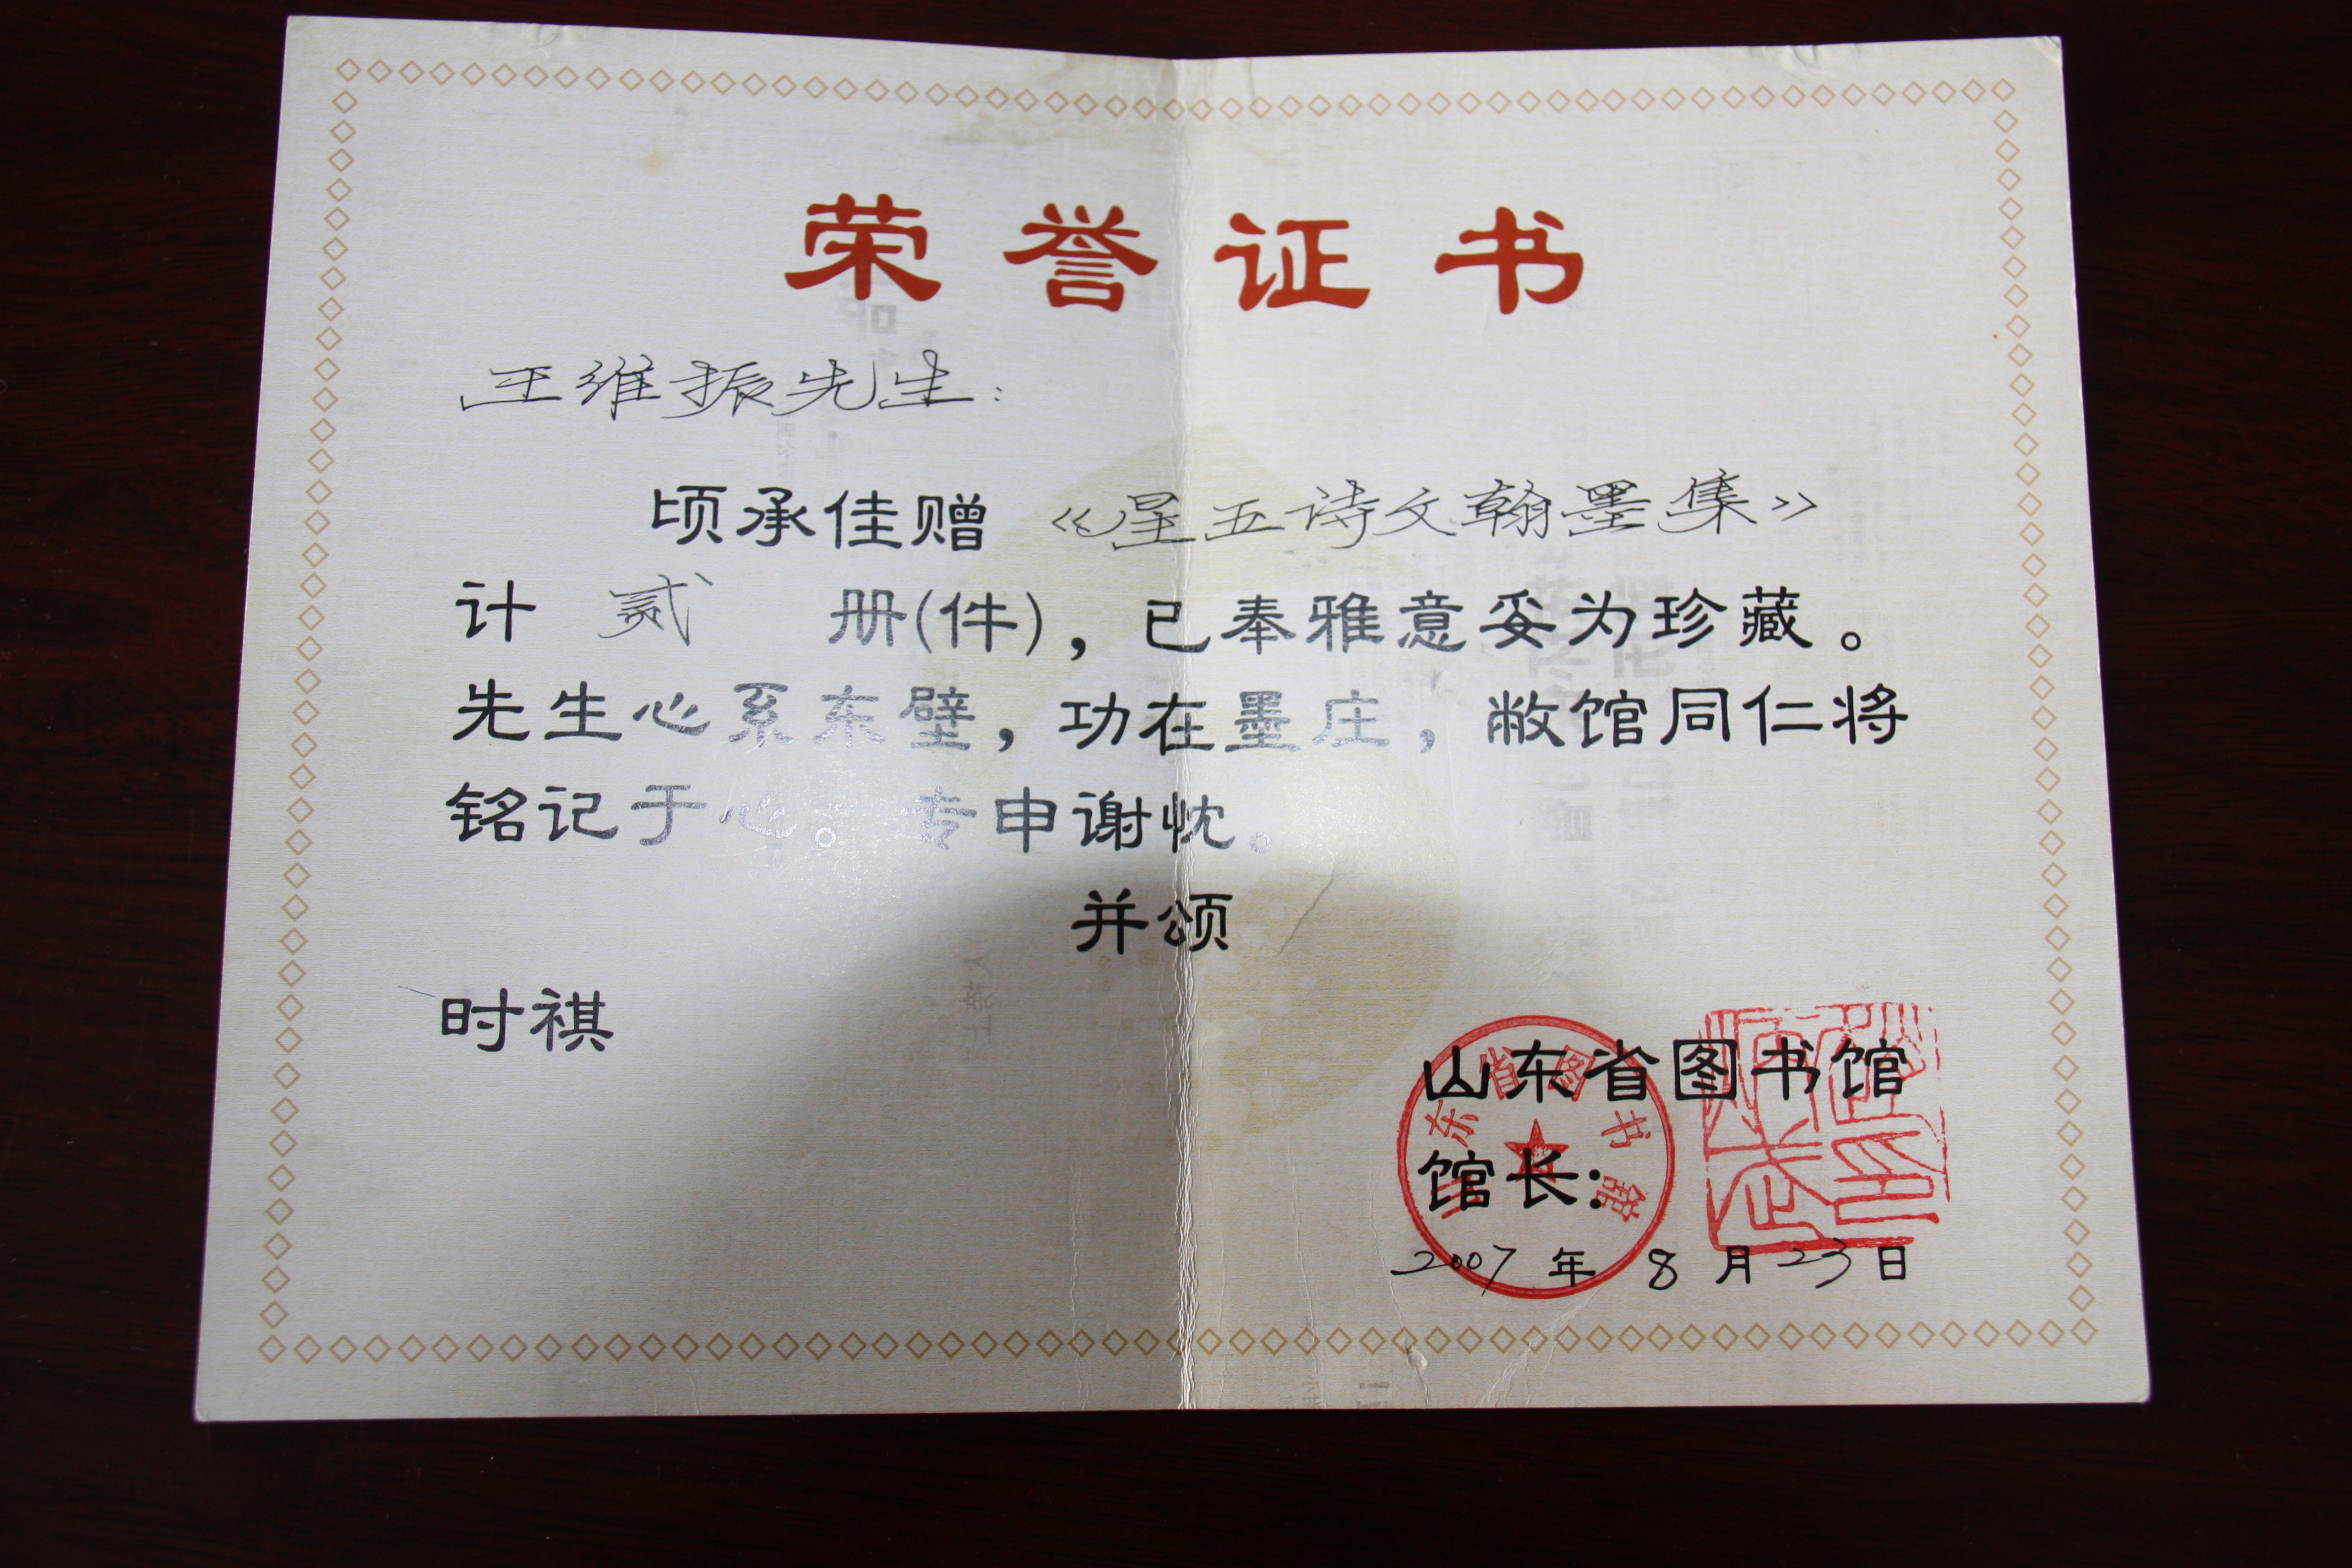 荣誉证书
王维振先生：
顷承佳赠《星五诗文翰墨集》
计 贰 册(件)，已奉雅意妥为珍藏。
先生心系东壁，功在墨庄，敝馆同仁将
铭记于心。专申谢忱。
并颂
时祺
山东省图书馆
馆长：
2007 年 8 月 23 日
东省图书馆